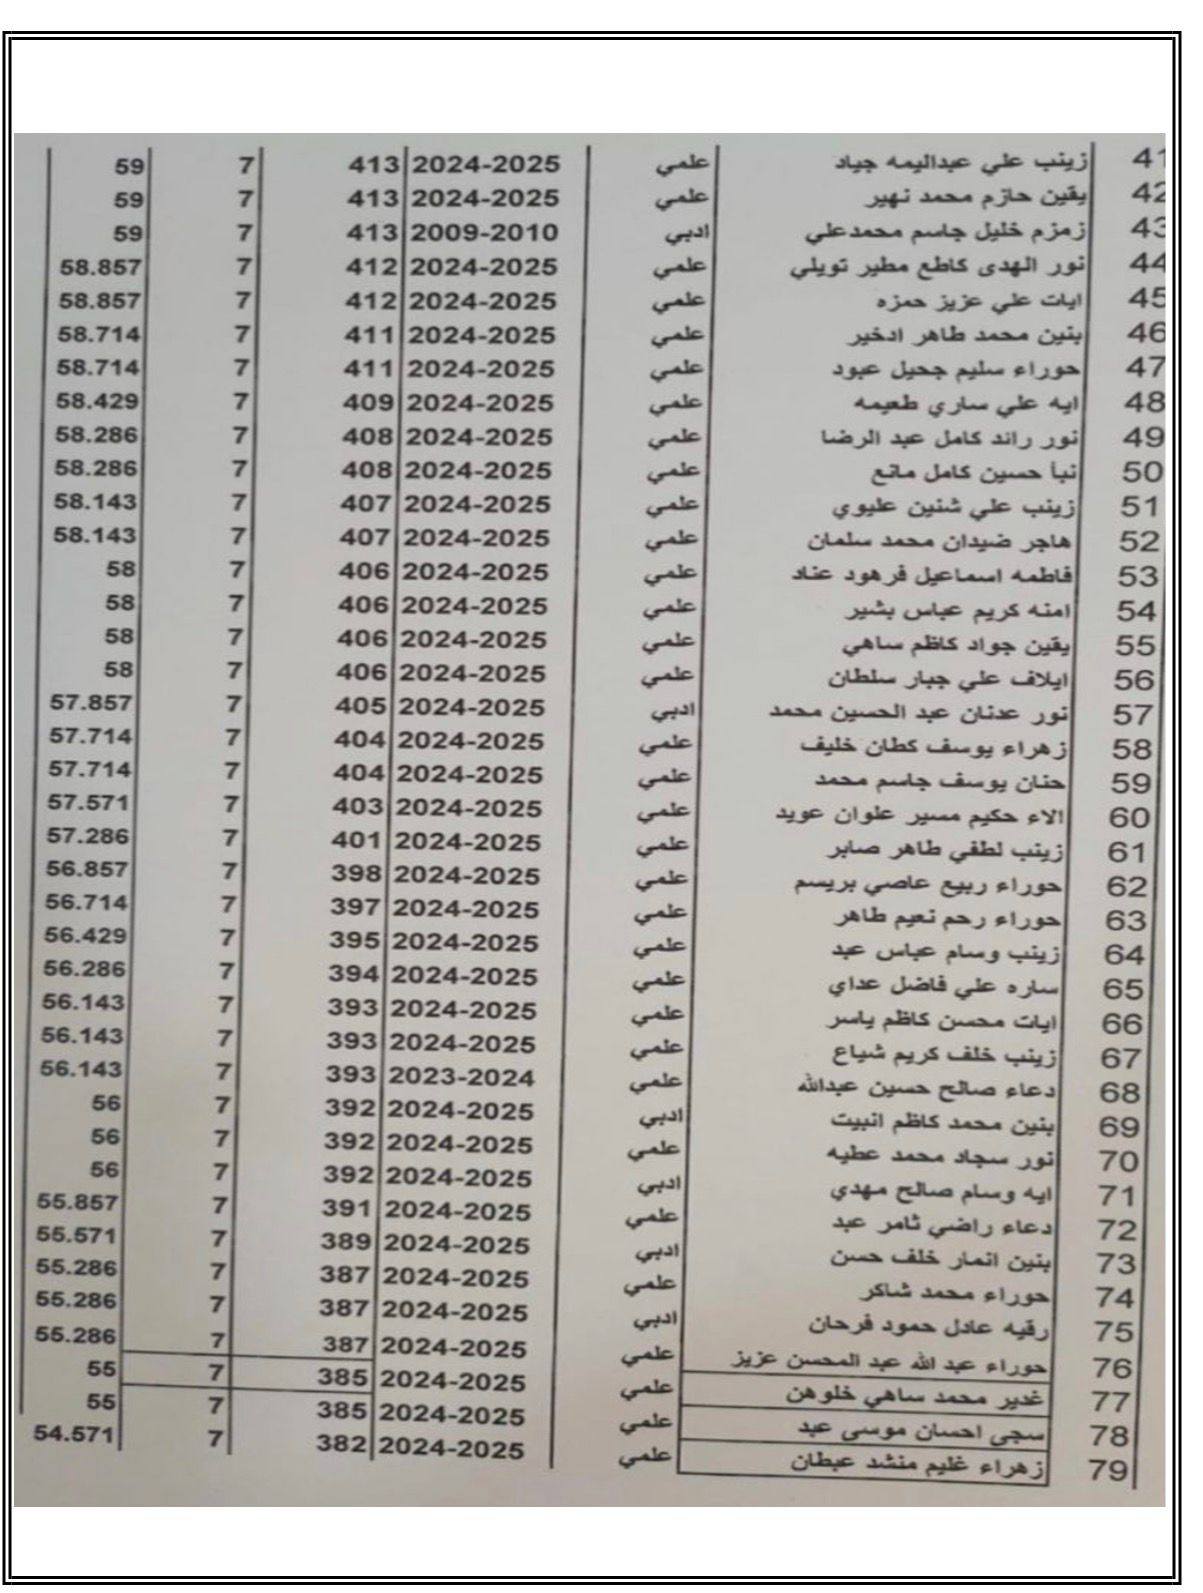 41 زينب علي عبداليمه جياد علمي 2024-2025 413 7 59
42 يقين حازم محمد نهير علمي 2024-2025 413 7 59
43 زمزم خليل جاسم محمدعلي ادبي 2009-2010 413 7 59
44 نور الهدى كاطع مطير تويلي علمي 2024-2025 412 7 58.857
45 ايات علي عزيز حمزه علمي 2024-2025 412 7 58.857
46 بنين محمد طاهر ادخير علمي 2024-2025 411 7 58.714
47 حوراء سليم جحيل عبود علمي 2024-2025 411 7 58.714
48 ايه علي ساري طعيمه علمي 2024-2025 409 7 58.429
49 نور رائد كامل عبد الرضا علمي 2024-2025 408 7 58.286
50 نبأ حسين كامل مانع علمي 2024-2025 408 7 58.286
51 زينب علي شنين عليوي علمي 2024-2025 407 7 58.143
52 هاجر ضيدان محمد سلمان علمي 2024-2025 407 7 58.143
53 فاطمه اسماعيل فرهود عناد علمي 2024-2025 406 7 58
54 امنه كريم عباس بشير علمي 2024-2025 406 7 58
55 يقين جواد كاظم ساهي علمي 2024-2025 406 7 58
56 ايلاف علي جبار سلطان علمي 2024-2025 406 7 58
57 نور عدنان عبد الحسين محمد ادبي 2024-2025 405 7 57.857
58 زهراء يوسف كطان خليف علمي 2024-2025 404 7 57.714
59 حنان يوسف جاسم محمد علمي 2024-2025 404 7 57.714
60 الاء حكيم مسير علوان عويد علمي 2024-2025 403 7 57.571
61 زينب لطفي طاهر صابر علمي 2024-2025 401 7 57.286
62 حوراء ربيع عاصي بريسم علمي 2024-2025 398 7 56.857
63 حوراء رحم نعيم طاهر علمي 2024-2025 397 7 56.714
64 زينب وسام عباس عبد علمي 2024-2025 395 7 56.429
65 ساره علي فاضل عداي علمي 2024-2025 394 7 56.286
66 ايات محسن كاظم ياسر علمي 2024-2025 393 7 56.143
67 زينب خلف كريم شياع علمي 2024-2025 393 7 56.143
68 دعاء صالح حسين عبدالله علمي 2023-2024 393 7 56.143
69 بنين محمد كاظم انبيت ادبي 2024-2025 392 7 56
70 نور سجاد محمد عطيه علمي 2024-2025 392 7 56
71 ايه وسام صالح مهدي ادبي 2024-2025 392 7 56
72 دعاء راضي ثامر عبد علمي 2024-2025 391 7 55.857
73 بنين انمار خلف حسن ادبي 2024-2025 389 7 55.571
74 حوراء محمد شاكر علمي 2024-2025 387 7 55.286
75 رقيه عادل حمود فرحان ادبي 2024-2025 387 7 55.286
76 حوراء عبد الله عبد المحسن عزيز علمي 2024-2025 387 7 55.286
77 غدير محمد ساهي خلوهن علمي 2024-2025 385 7 55
78 سجى احسان موسى عبد علمي 2024-2025 385 7 55
79 زهراء غليم منشد عبطان علمي 2024-2025 382 7 54.571